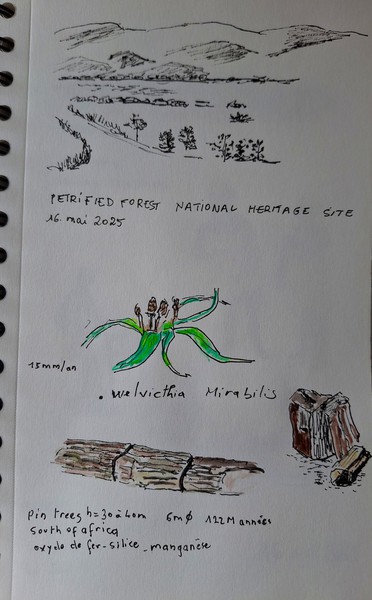 PETRIFIED FOREST NATIONAL HERMTAGE SITE
16. mai 2025
15mm/an
. Welvicthia Mirabilis
Pin trees h=30 à 40m 6m ø 122M années
South of africa
oxyde de fer-silice - manganèse